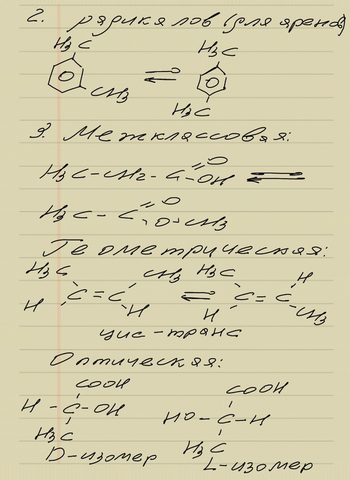 2. радикалов (для аренов)
H₃C H₃C
CH₃ H₃C
3. Межклассовая:
H₃C-CH₂-C=O OH ⇌
H₃C-C=O O-CH₃
Геометрическая:
H₃C CH₃ H₃C H
C=C ⇌ C=C
H H H CH₃
цис-транс
Оптическая:
COOH COOH
H-C-OH HO-C-H
H₃C H₃C
D-изомер L-изомер